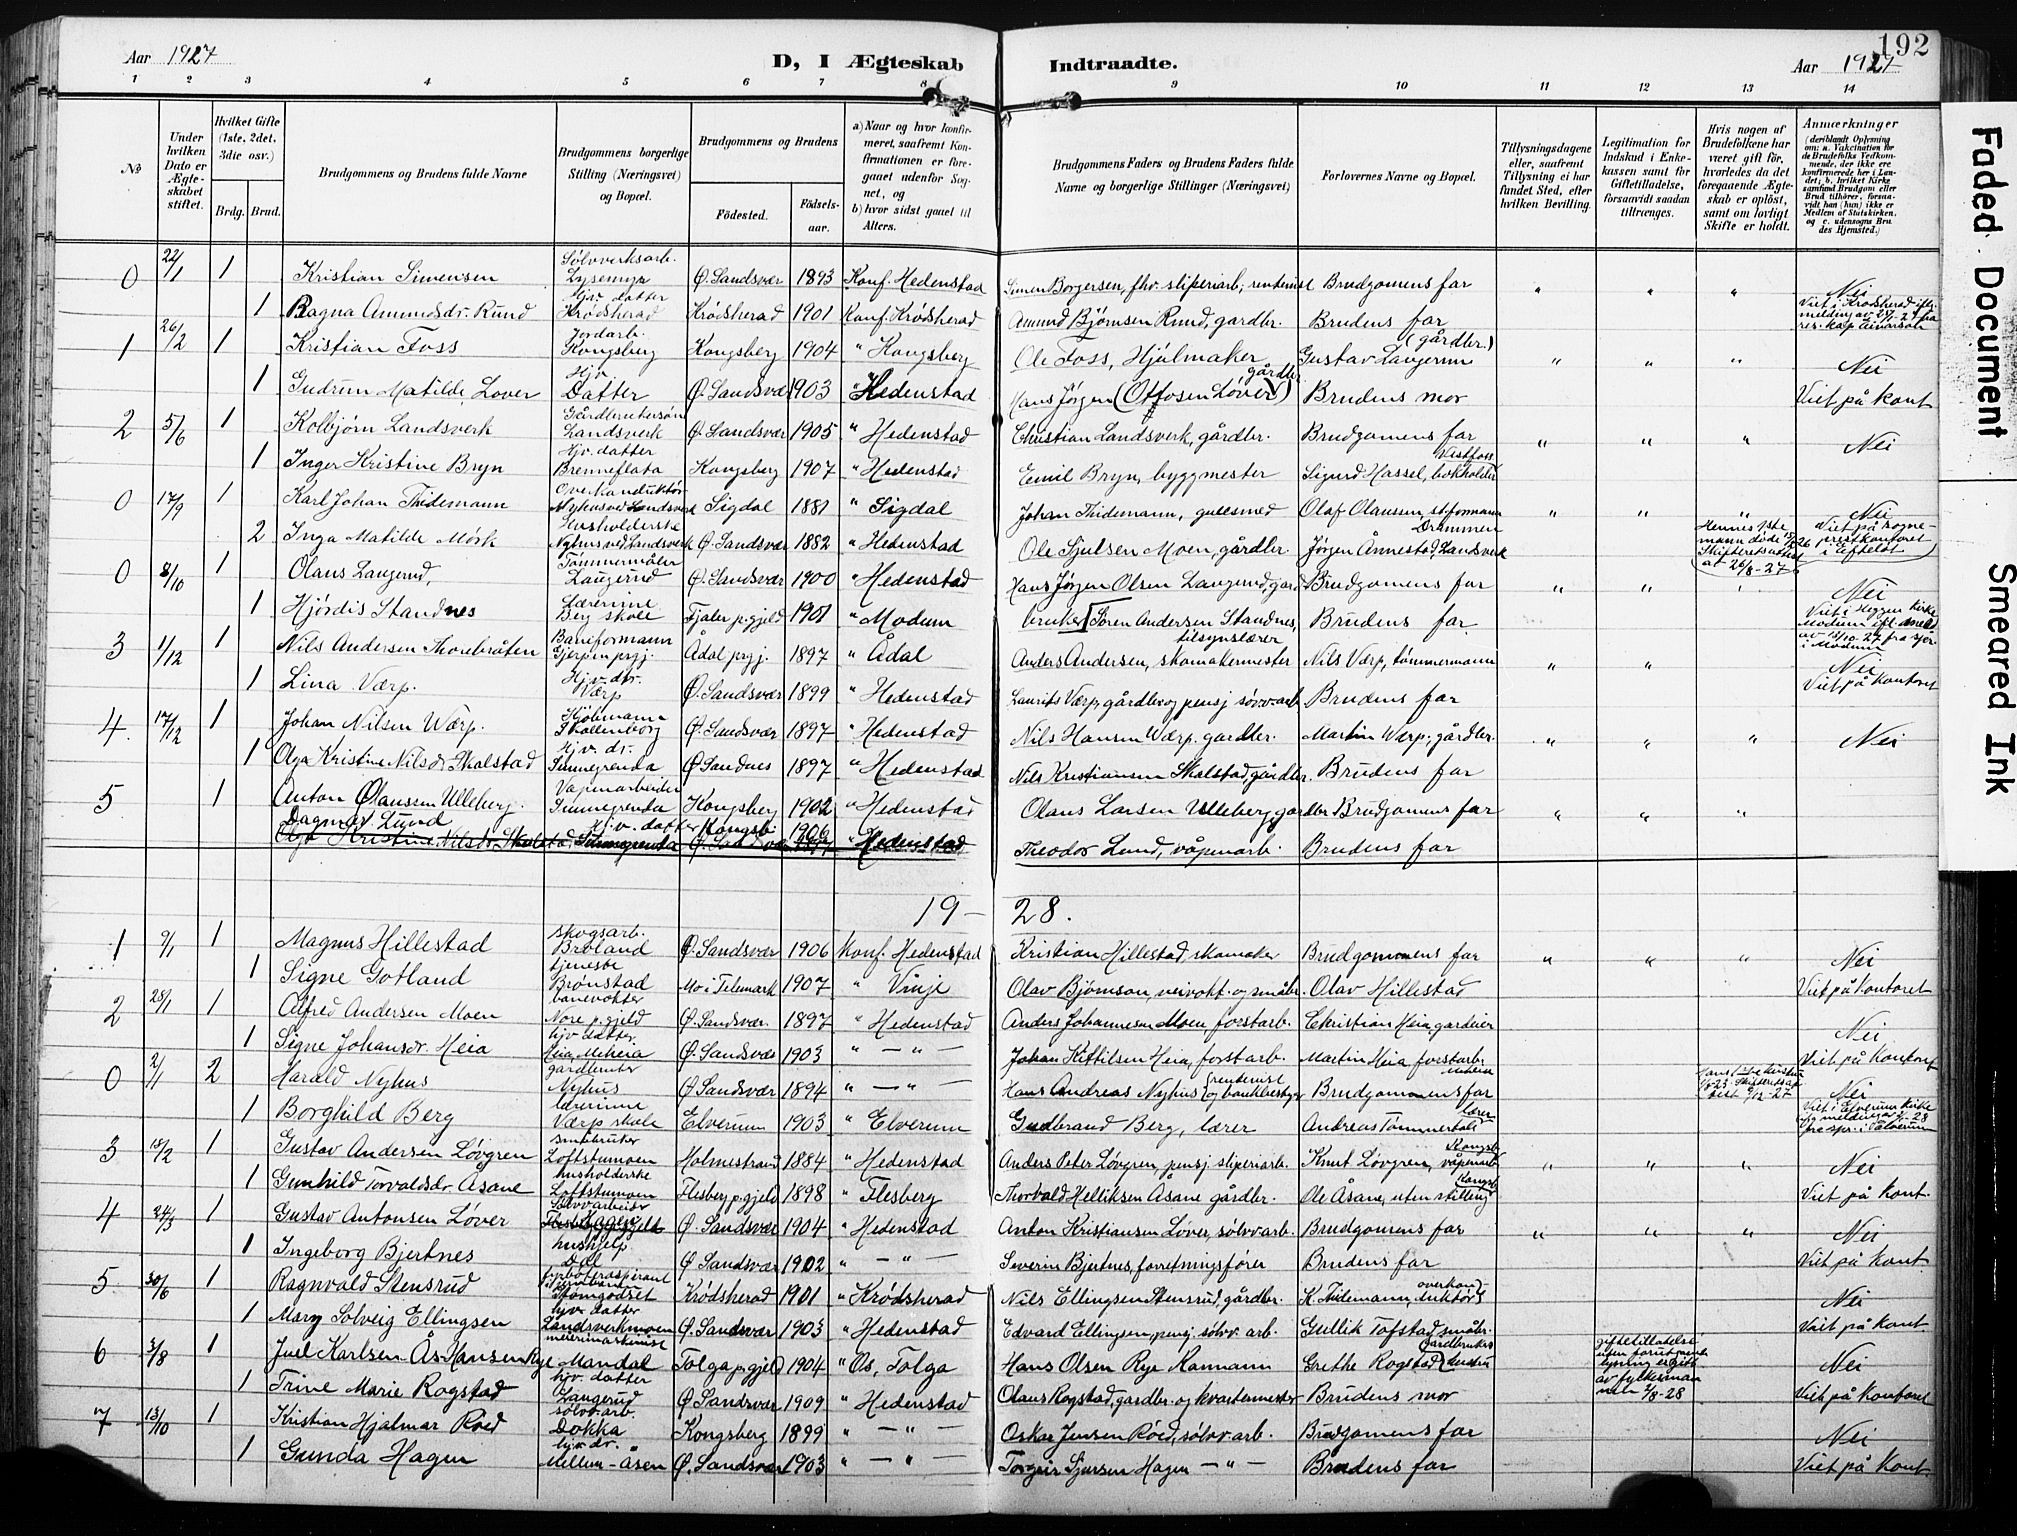 Aar 1927
D, I Ægteskab
Indtraadte.
Aar 1927
192
1 2 3 4 5 6 7 8 9 10 11 12 13 14
No
Under hvilken Dato er Ægteskabet stiftet.
Hvilket Gifte (1ste, 2det, 3die osv.)
Brdg. Brud.
Brudgommens og Brudens fulde Navne
Brudgommens borgerlige Stilling (Næringsvei) og Bopæl.
Brudgommens og Brudens
Fødested. Fødselsaar.
a) Naar og hvor konfirmeret, saafremt Konfirmationen er foregaaet udenfor Sognet, og
b) hvor sidst gaaet til Alters.
Brudgommens Faders og Brudens Faders fulde Navne og borgerlige Stillinger (Næringsvei)
Forlovernes Navne og Bopæl.
Tillysningsdagene eller, saafremt Tillysning ei har fundet Sted, efter hvilken Bevilling.
Legitimation for Indskud i Enkekassen samt for Giftetilladelse, forsaavidt saadan tiltrænges.
Hvis nogen af Brudefolkene har været gift før, hvorledes da det foregaaende Ægteskab er opløst, samt om lovligt Skifte er holdt.
Anmærkninger (deriblandt Oplysning om: a. Vakcination for de Brudefolks Vedkommende, der ikke ere konfirmerede her i Landet; b. hvilket Kirkesamfund Brudgom eller Brud tilhører, forsaavidt han (hun) ikke er Medlem af Statskirken, og c. udensogns Brudes Hjemsted.)
0 22/1 1 Kristian Simensen Sølvverksarb. Lysemyr Ø. Sandsvær 1893 Konf. Hedenstad Simen Borgersen, fhv. sliperiarb; rentenist Brudgomens far " " " Nei
1 Ragna Amundsdr. Rund Hjv. datter Krødsherad Krødsherad 1901 Konf. Krødsherad Amund Bjørnsen Rund, gardbr. Brudens far Viet i Krødsherad
1 26/2 1 Kristian Foss Jordarb. Kongsberg Kongsberg 1904 " Kongsberg Ole Foss, Hjulmaker Gustav Laugerud (gårdbr.) " " " Nei
1 Gudrun Matilde Løver Hjv. Datter Ø. Sandsvær 1903 " Hedenstad Hans Jørgen (Ottosen Løver) gårdbr Brudens mor Viet på kont
2 5/6 1 Kolbjørn Landsverk Gårdbrukersøn Landsverk Ø. Sandsvær 1905 " Hedenstad Christian Landsverk, gårdbr. Brudgomens far " " " Nei
1 Inger Kristine Bryn Hjv. datter Brenneflata Kongsberg 1907 " Hedenstad Emil Bryn, byggmester Sigurd Hassel, bokholder Vestfoss
0 17/9 1 Karl Johan Thidemann Overkonduktør Nyhus ved Landsverk Sigdal 1881 " Sigdal Johan Thidemann, gullsmed Olaf Olaussen, stiformann Drammen " " " Nei
2 Inga Matilde Mørk Husholderske Nyhus ved Landsverk Ø. Sandsvær 1882 " Hedenstad Ole Sjulsen Moen, gårdbr. Jørgen Ånnestad, Landsverk Hennes 1ste mann døde Skifteretsattest av 26/8-27 Viet på sogneprestkontoret i Efteløt
0 8/10 1 Olaus Laugerud, Tømmermåler Laugerud Ø. Sandsvær 1900 " Hedenstad Hans Jørgen Olsen Laugerud, gard Brudgomens far " " " Nei
1 Hjørdis Standnes Lærerinne Berg skole Fjaler p.gjeld 1901 " Modum bruker Søren Andersen Standnes, tilsynslærer Brudens far Viet i Heggen kirke Modum
3 1/12 1 Nils Andersen Thorebråten Baneformann Gjerpen prgj. Ådal prgj. 1897 " Ådal Anders Andersen, skomakermester Nils Værp, tømmermann " " Nei
1 Lina Værp. Hjv. dtr. Værp Ø. Sandsvær 1899 " Hedenstad Laurits Værp, gårdbr og pensj sølvv.arb Brudens far Viet på kontoret
4 17/12 1 Johan Nilsen Værp. Kjøbmann Skollenborg Ø. Sandsvær 1897 " Hedenstad Nils Hansen Værp. gardbr. Martin Værp; gårdbr. " " " Nei
1 Olga Kristine Nilsdr Skalstad Hjv. dr. Sinnegrenda Ø Sandnes 1897 " Hedenstad Nils Kristiansen Skalstad, gårdbr. Brudens far
5 1 Anton Olaussen Ulleberg. Våpenarbeider Sinnegrenda Kongsberg 1902 " Hedenstad Olaus Larsen Ulleberg, gardbr Brudgomens far " " "
Dagmar Lund Hj.v. datter Kongsb. 1906
Olga Kristine Nilsdr Skalstad Sinnegrenda " Hedenstad Theodor Lund, våpenarb. Brudens far
19 - 28.
1 9/1 1 Magnus Hillestad skogsarb. Brøland Ø. Sandsvær 1906 konf. Hedenstad Kristian Hillestad skomaker Brudgommens far " " " Nei
1 Signe Gotland tjeneste Brønstad Mo i Telemark 1907 " Vinje Olav Bjørnson, veivokt. og småbr. Olav Hillestad Viet på kontoret
2 28/1 1 Alfred Andersen Moen banevokter Nore p.gjeld Ø. Sandsvær. 1897 " Hedenstad Anders Johannesen Moen forstarb. Christian Heia, gardeier Nei
1 Signe Johansdr. Heia hjv. datter. Heia, Meheia Ø. Sandsvær 1903 " — " — Johan Kittilsen Heia, forstarb. Martin Heia forstarb. Meheia Viet på kontoret
0 2/1 2 Harald Nyhus gårdbruker Nyhus Ø Sandsvær 1894 " — " — Hans Andreas Nyhus rentenist og bankbestyr Brudgommens far Nei
1 Borghild Berg lærerinne Værp skole Elverum 1903 " Elverum Gudbrand Berg, lærer Andreas Tømmerbak lærer Viet i Elverum kirke
3 18/2 1 Gustav Andersen Løvgren småbruker Loftstumoen Holmestrand 1884 " Hedenstad Anders Peter Løvgren, pensj sliperiarb. Knut Løvgren, våpenarb Kongsb. " " " Nei
1 Gunhild Torvaldsdr. Åsane husholderske Loftstumoen Flesberg p.gjeld 1898 " Flesberg Thorvald Helliksen Åsane gårdbr. Ole Åsane, uten stilling Kongsb Viet på kont.
4 24/3 1 Gustav Antonsen Løver Sølvv.arbeider Ø. Sandsvær 1904 " Hedenstad Anton Kristiansen Løver, sølvv.arb. Brudgomens far " " " Nei
1 Ingeborg Bjertnes hushjelp. Dal Ø Sandsvær 1902 " — " — Severin Bjertnes, forretningsfører Brudens far Viet på kont.
5 30/6 1 Ragnvald Stensrud Fyrbøteraspirant Strømgodset Krødsherad 1901 " Krødsherad Nils Ellingsen Stensrud, gårdbr. K. Thidemann, overkonduktør Nei
1 Mary Solveig Ellingsen hjv. datter Landsverkmoen Ø. Sandsvær 1903 " Hedenstad Edvard Ellingsen, pensj. sølvv. arb. Gullik Tofstad småbr. Viet på kont.
6 3/8 1 Juel Karlsen Ås Hansen Rye meierimaskinist Mandal Tolga p.gjeld 1904 " Os, Tolga Hans Olsen Rye Kamann Grethe Rogstad gårdbruker giftetillatelse uten forutgående lysning er gitt av fylkesmannen 2/8-28 Nei
1 Trine Marie Rogstad hjv. datter Laugerud Ø. Sandsvær 1909 " Hedenstad Olaus Rogstad, gardbr. og kvartermester Brudens mor Viet på kontoret
7 13/10 1 Kristian Hjalmar Røed sølvv.arb. Dokka Kongsberg 1899 " — " — Oskar Jensen Røed, sølvv.arb. Brudgomens far Nei
1 Gunda Hagen hjv. dr. Mellem-åsen Ø. Sandsvær 1903 " — " — Torgeir Sjursen Hagen — " — Brudens far Viet på kont
Faded Document
Smeared Ink